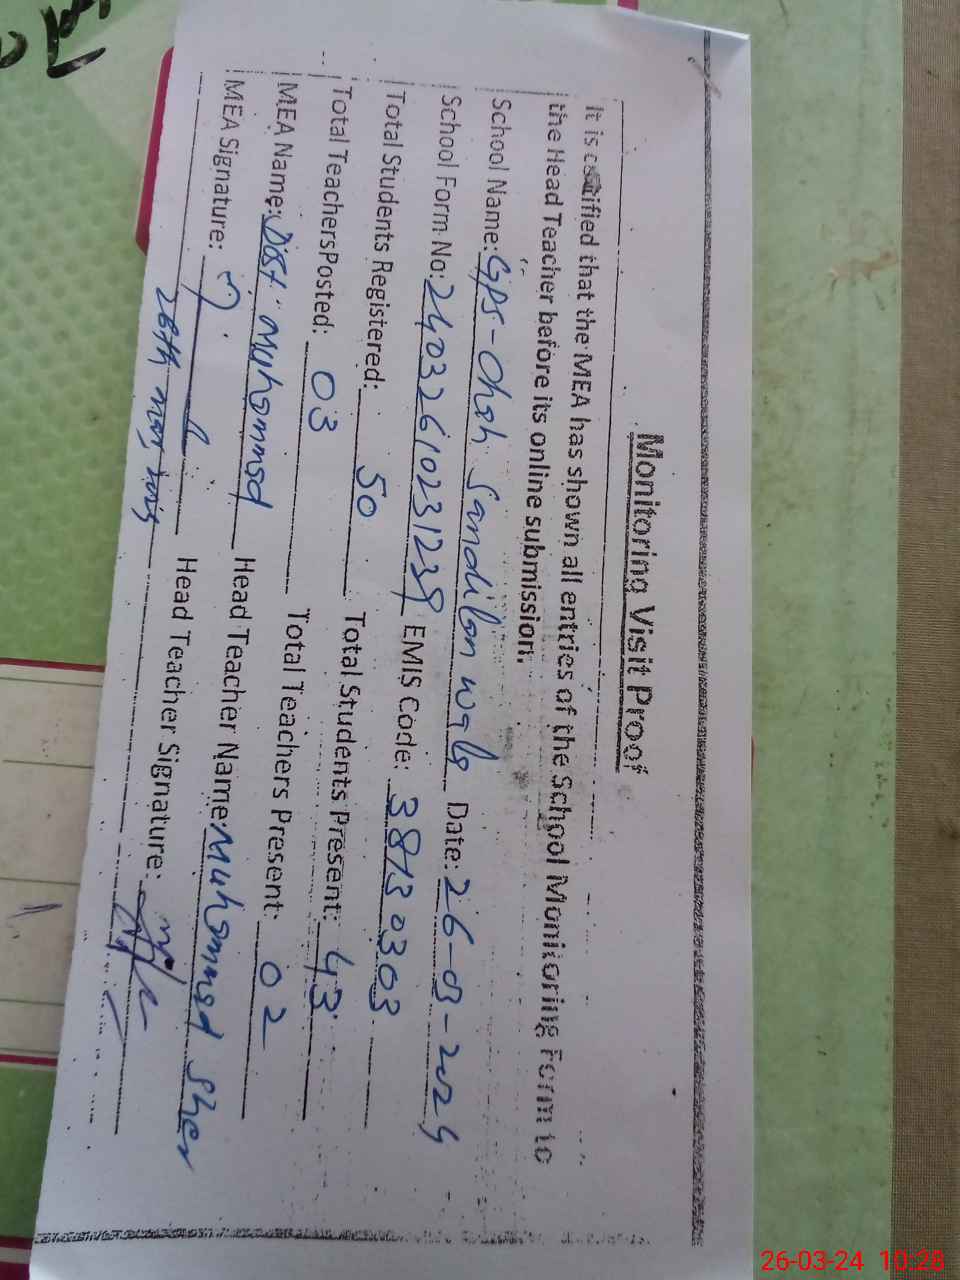 Monitoring Visit Proof
It is certified that the MEA has shown all entries of the School Monitoring Form to
the Head Teacher before its online submission.
School Name: GPS-Chah Sandilan wala Date: 26-03-2024
School Form No: 24032610231239 EMIS Code: 38130303
Total Students Registered: 50 Total Students Present: 43
Total Teachers Posted: 03 Total Teachers Present: 02
MEA Name: Dost Muhammad Head Teacher Name: Muhammad Sher
MEA Signature: Head Teacher Signature:
26-03-24 10:28